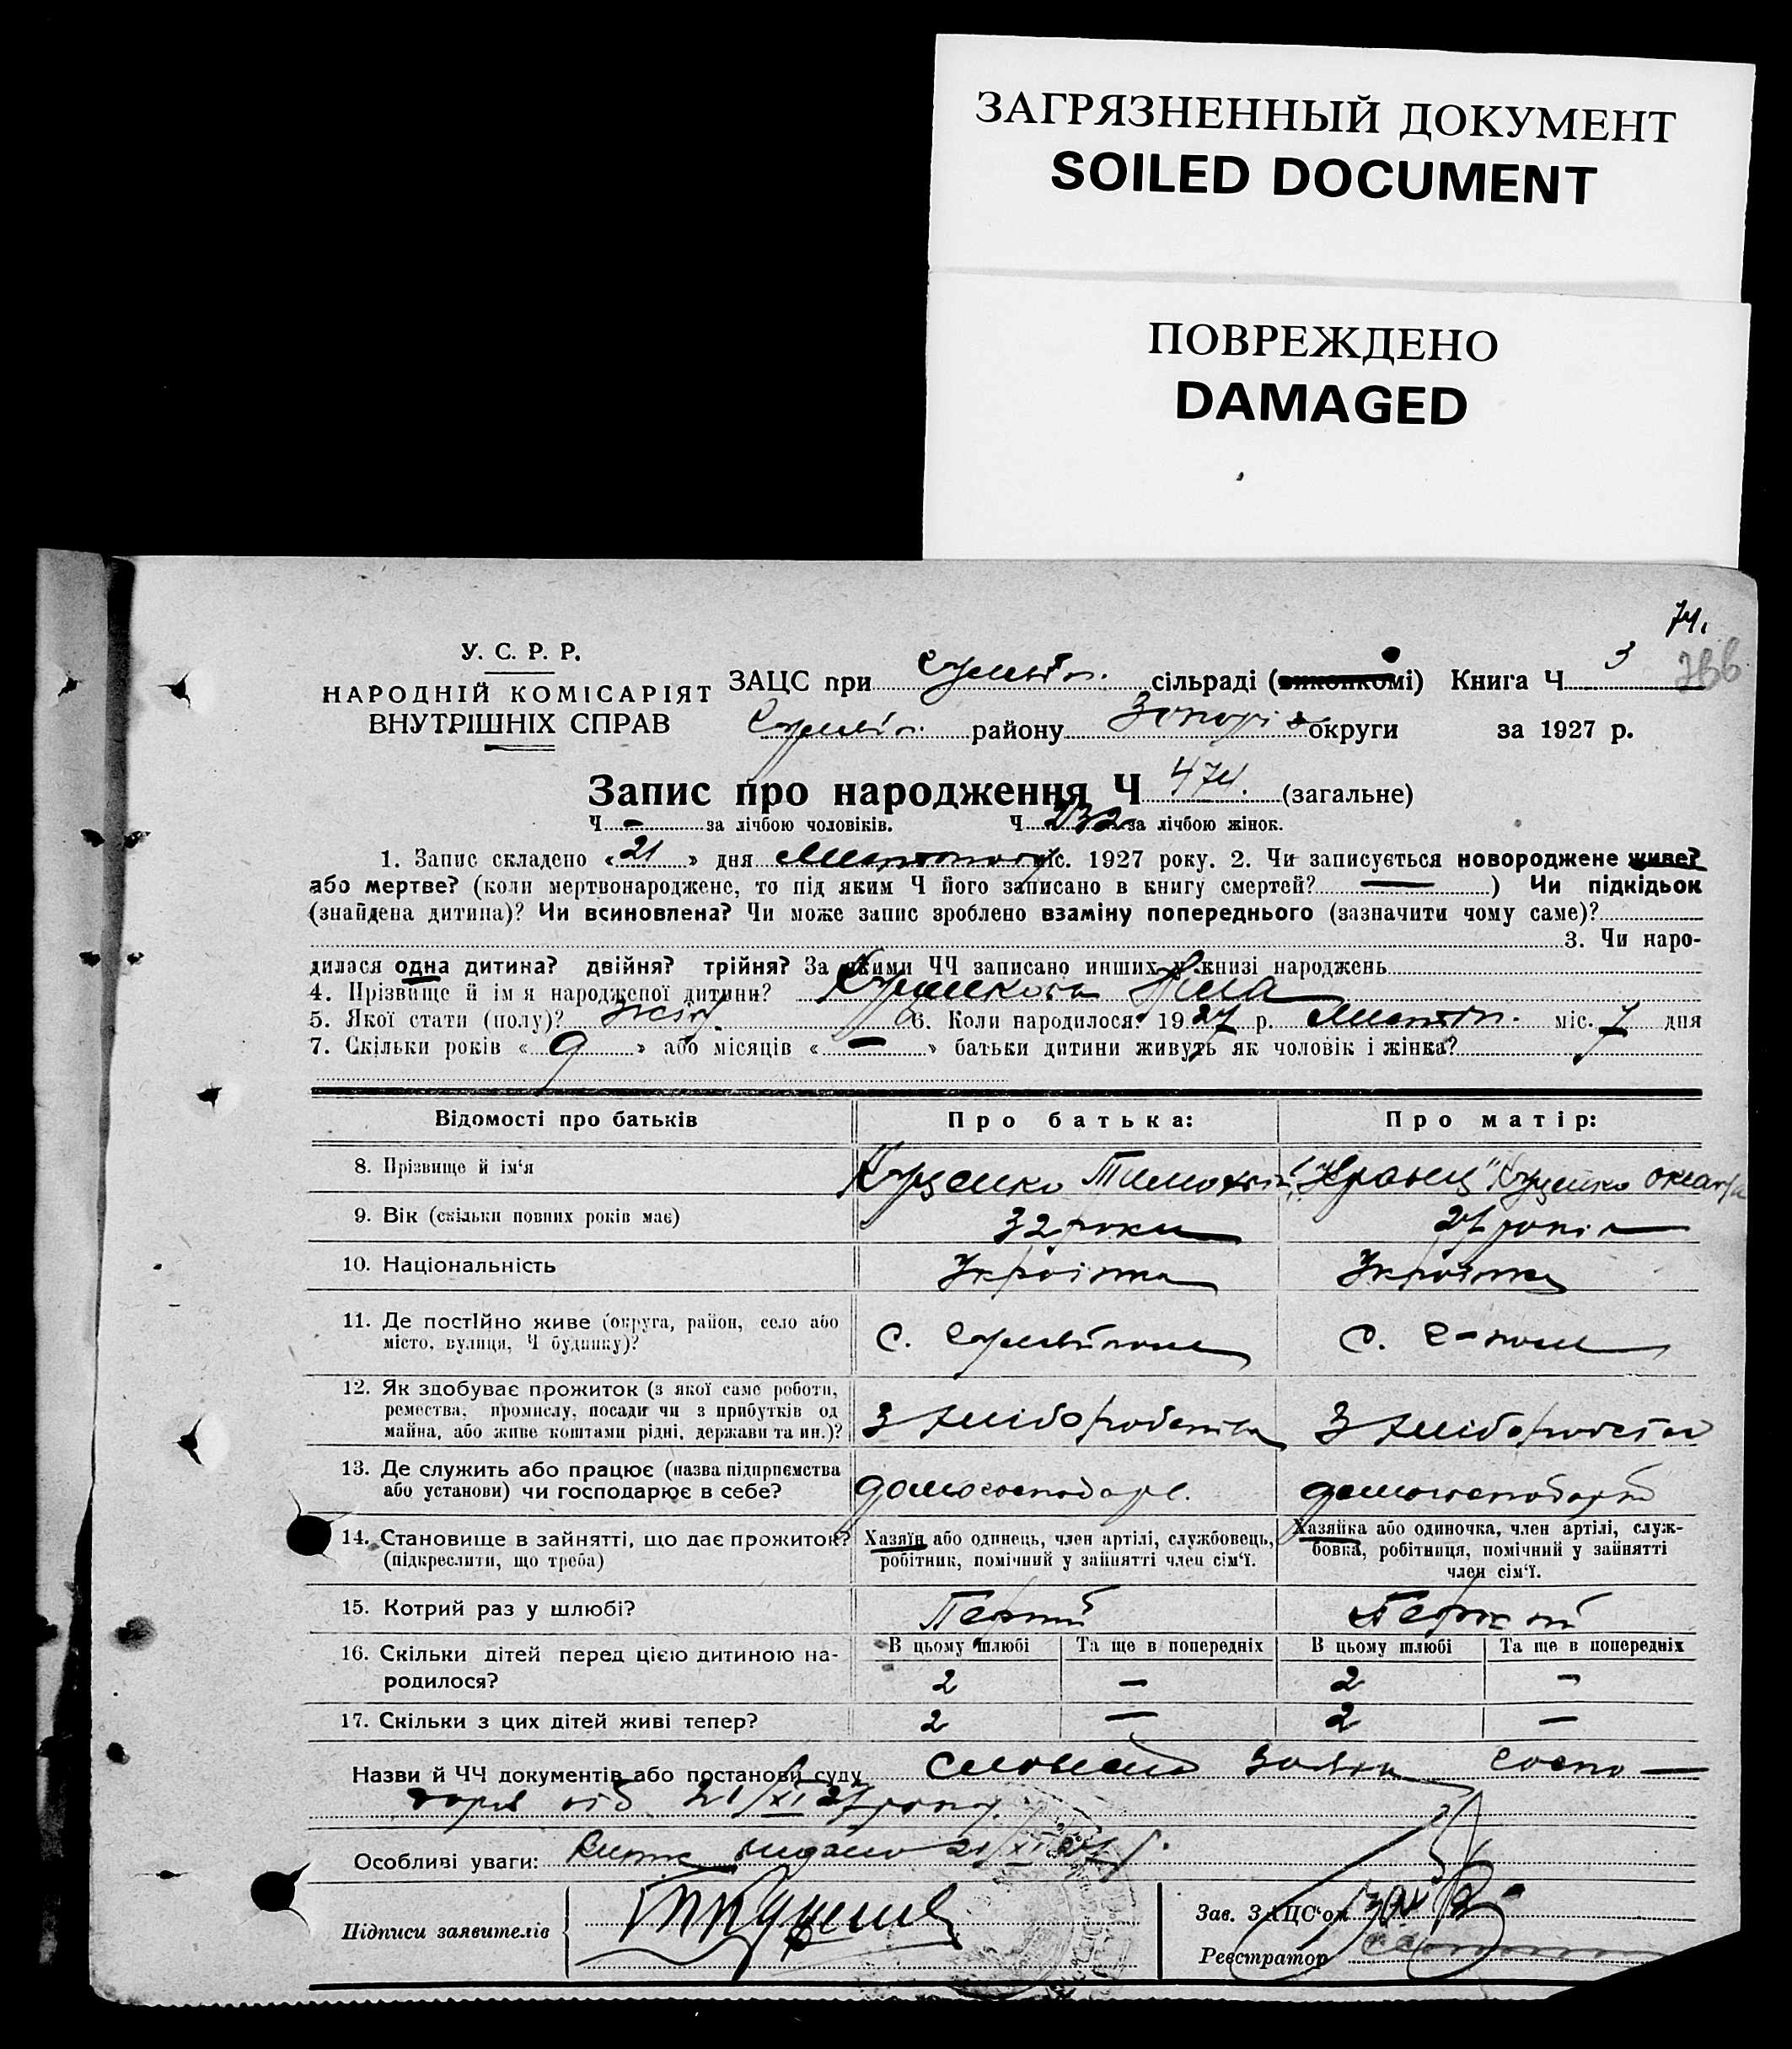 ЗАГРЯЗНЕННЫЙ ДОКУМЕНТ
SOILED DOCUMENT
ПОВРЕЖДЕНО
DAMAGED
74.
У. С. Р. Р.
НАРОДНІЙ КОМІСАРІЯТ
ВНУТРІШНІХ СПРАВ
ЗАЦС при сільраді (виконкомі) Книга Ч 3
району округи за 1927 р.
Запис про народження Ч 474. (загальне)
Ч. – за лічбою чоловіків. Ч. 232 за лічбою жінок.
1. Запис складено «21» дня міс. 1927 року. 2. Чи записується новороджене живе?
або мертве? (коли мертвонароджене, то під яким Ч його записано в книгу смертей? — ) Чи підкідьок
(знайдена дитина)? Чи всиновлена? Чи може запис зроблено взаміну попереднього (зазначити чому саме)?
3. Чи наро-
дилася одна дитина? двійня? трійня? За якими ЧЧ записано инших у книзі народжень
4. Прізвище й ім'я народженої дитини?
5. Якої стати (полу)? жін. 6. Коли народилося? 1927 р. міс. 7 дня
7. Скільки років «9» або місяців «–» батьки дитини живуть як чоловік і жінка?
Відомості про батьків Про батька: Про матір:
8. Прізвище й ім'я Куценко Тимофій Куценко
9. Вік (скільки повних років має) 32 роки 27 років
10. Національність Україн
11. Де постійно живе (округа, район, село або
місто, вулиця, Ч будинку)? с. с.
12. Як здобуває прожиток (з якої саме роботи,
ремества, промислу, посади чи з прибутків од
майна, або живе коштами рідні, держави та ин.)? З хліборобства З хліборобства
13. Де служить або працює (назва підприємства
або установи) чи господарює в себе? домогосподар
14. Становище в зайнятті, що дає прожиток?
(підкреслити, що треба)
Хазяїн або одинець, член артілі, службовець,
робітник, помічний у зайнятті член сім'ї.
Хазяйка або одиночка, член артілі, служ-
бовка, робітниця, помічний у зайнятті
член сім'ї.
15. Котрий раз у шлюбі? Первий Первий
В цьому шлюбі Та ще в попередніх В цьому шлюбі Та ще в попередніх
16. Скільки дітей перед цією дитиною на-
родилося? 2 – 2 –
17. Скільки з цих дітей живі тепер? 2 – 2 –
Назви й ЧЧ документів або постанови суду заява
від 21/XI 27 року.
Особливі уваги: видано 21/XI 27 р.
Підписи заявителів
Зав. ЗАЦС'ом
Реєстратор